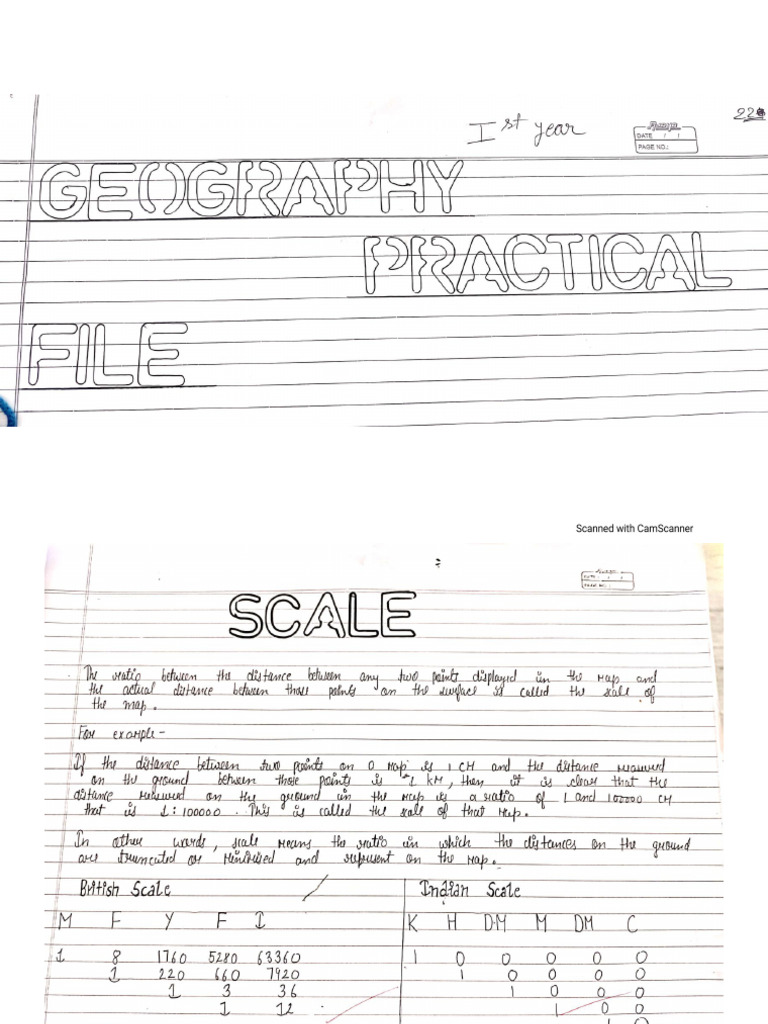 Ist year
DATE / /
PAGE NO.:
GEOGRAPHY
PRACTICAL
FILE
Scanned with CamScanner
SCALE
The ratio between the distance between any two points displayed in the Map and
the actual distance between those points on the surface is called the scale of
the map.
For example-
If the distance between two points on a Map is 1 CM and the distance measured
on the ground between those points is 1 KM, then it is clear that the
distance measured on the ground in the Map is a ratio of 1 and 100000 CM
that is 1:100000. This is called the scale of that Map.
In other words, scale Means the ratio in which the distances on the ground
are truncated or Minimised and represent on the Map.
British Scale
M F Y F I
1 8 1760 5280 63360
1 220 660 7920
1 3 36
1 12
Indian Scale
K H D.M M DM C
1 0 0 0 0 0
1 0 0 0 0
1 0 0 0
1 0 0
1 0